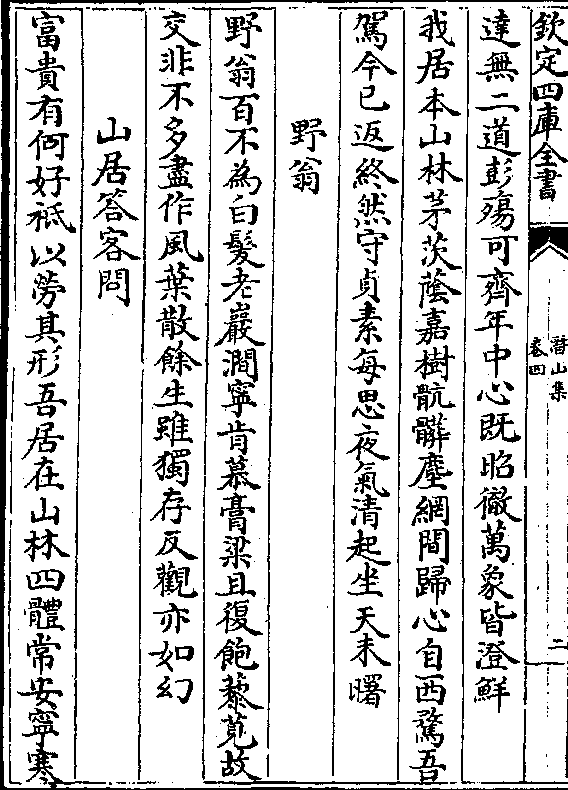 欽定四庫全書
潛山集
卷四
二
達無二道彭殤可齊年中心既昭徹萬象皆澄鮮
我居本山林茅茨蔭嘉樹骯髒塵網間歸心自西騖吾
駕今已返終然守貞素每思夜氣清起坐天未曙
野翁
野翁百不為白髮老巖澗寧肯慕膏粱且復飽藜莧故
交非不多盡作風葉散餘生雖獨存反觀亦如幻
山居答客問
富貴有何好祗以勞其形吾居在山林四體常安寧寒